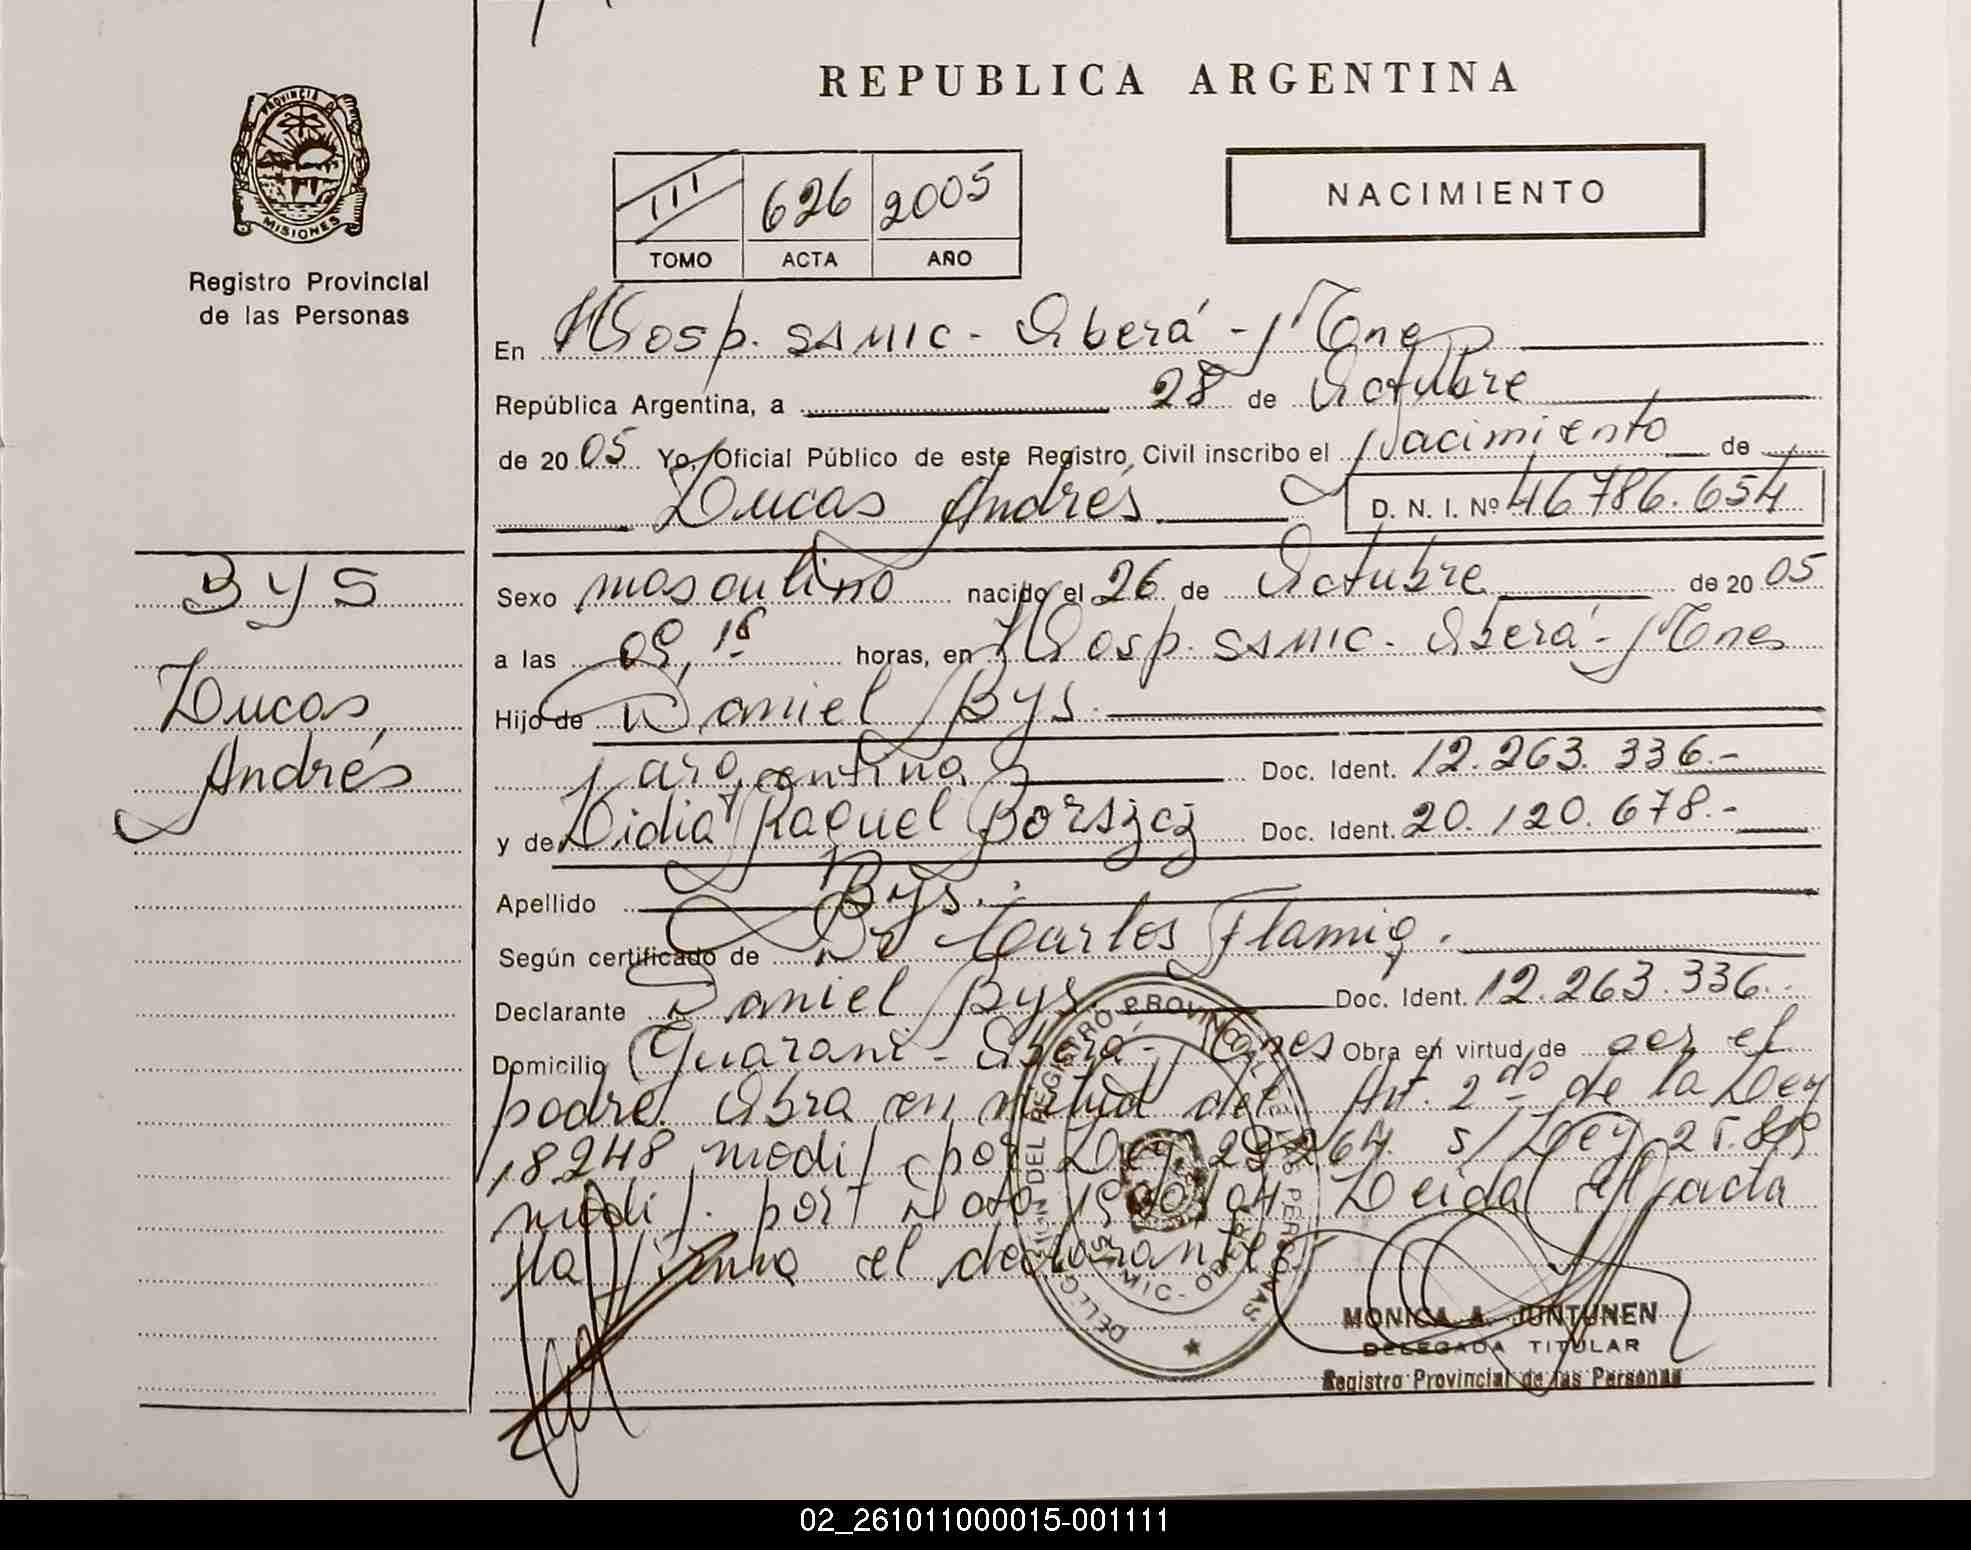 REPUBLICA ARGENTINA
PROVINCIA DE
MISIONES
Registro Provincial
de las Personas
III 626 2005
TOMO ACTA AÑO
NACIMIENTO
En Hosp. SAMIC - Oberá - Mnes
República Argentina, a 28 de Octubre
de 2005 Yo, Oficial Público de este Registro Civil inscribo el Nacimiento de
Lucas Andrés D. N. I. Nº 46.786.654
BYS
Lucas
Andrés
Sexo masculino nacido el 26 de Octubre de 2005
a las horas, en Hosp. SAMIC - Oberá - Mnes
Hijo de Daniel Bys.
argentino Doc. Ident. 12.263.336.-
y de Lidia Raquel Borszcz Doc. Ident. 20.120.678.-
Apellido Bys.
Según certificado de Dr Carlos Flamig.
Declarante Daniel Bys. Doc. Ident. 12.263.336.
Domicilio Guaraní - Oberá - Mnes Obra en virtud de ser el
padre. Obra en virtud del Art. 2do de la Ley
18248 modif. por Ley 23264 s/Ley
modif. por Leída el acta
la firma el declarante.
DELEGACION DEL REGISTRO PROVINCIAL DE LAS PERSONAS
SAMIC - OBERA
MONICA A. JUNTUNEN
DELEGADA TITULAR
Registro Provincial de las Personas
02_261011000015-001111